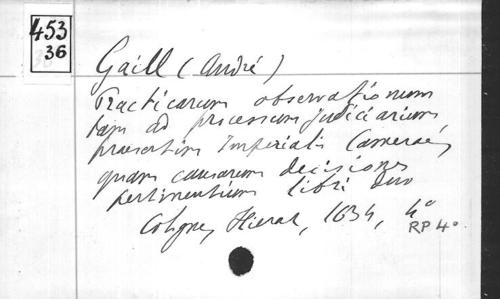 453
36
Gaill (André)
Practicarum observationum
tam ad processum judiciarium
praesertim Imperialis Camerae,
quam causarum decisiones
pertinentium libri duo
Cologne, Hierat, 1634, 4°
RP 4°